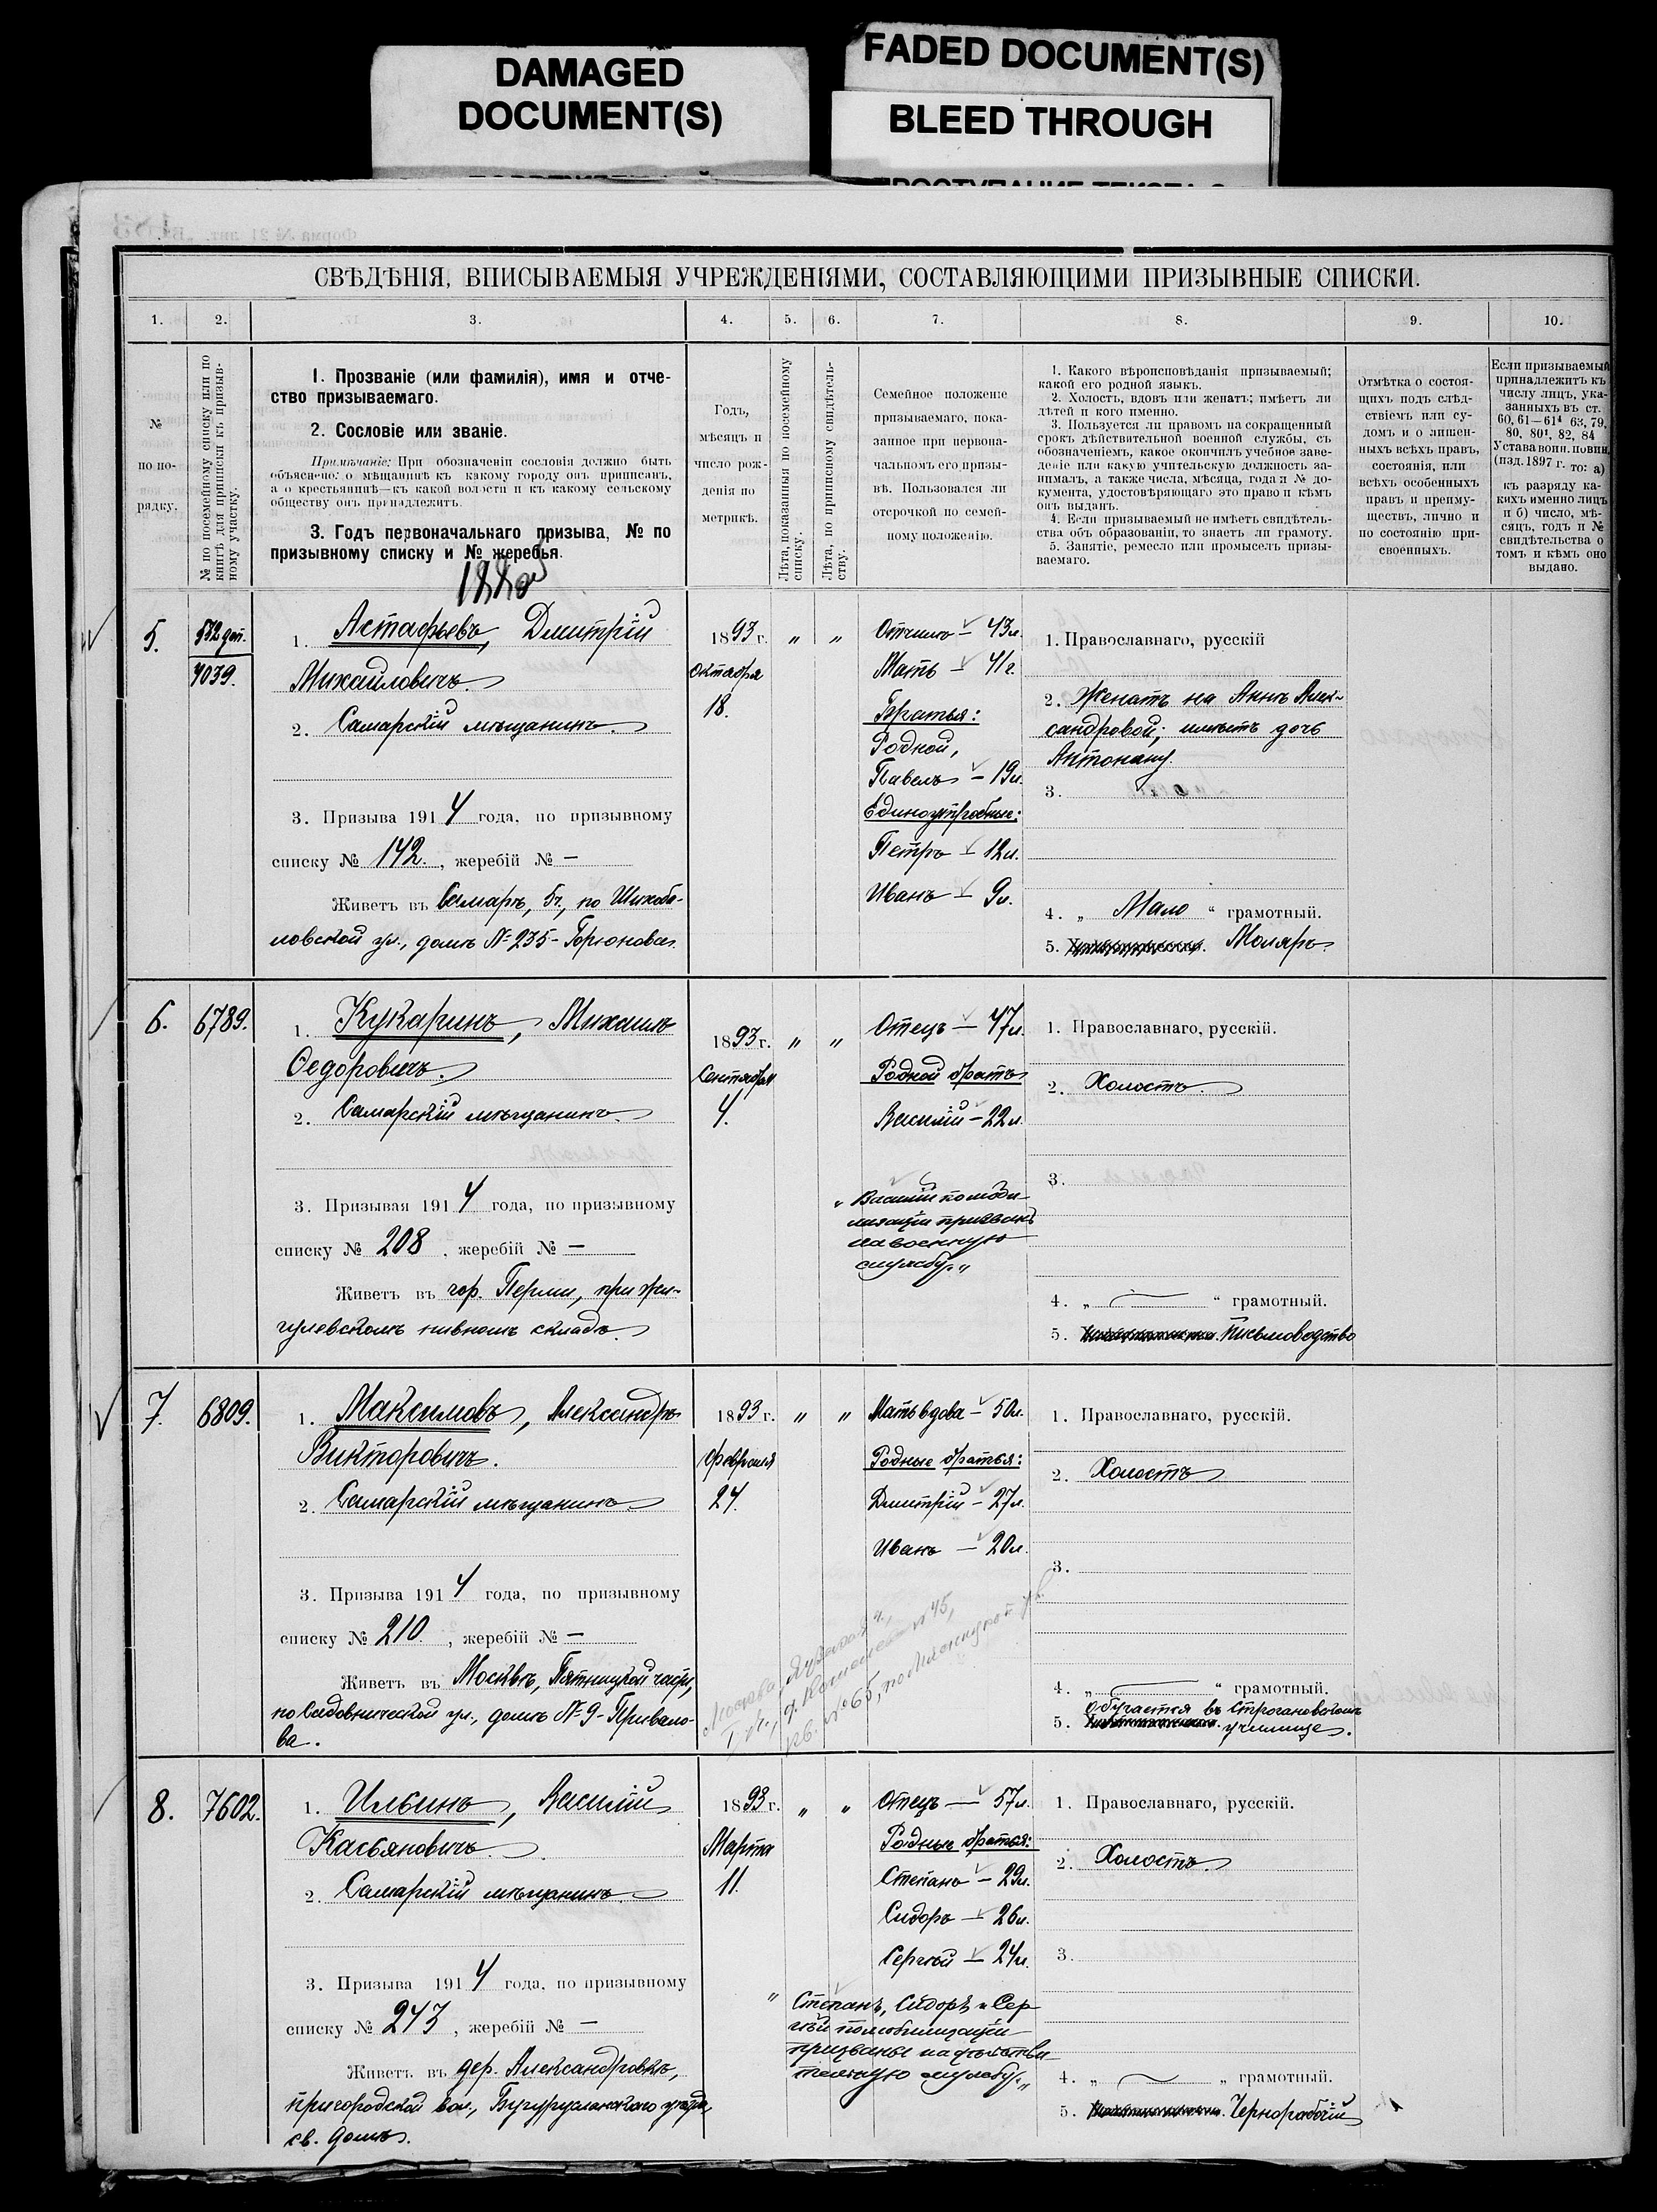 DAMAGED
DOCUMENT(S)
FADED DOCUMENT(S)
BLEED THROUGH
СВѢДѢНІЯ, ВПИСЫВАЕМЫЯ УЧРЕЖДЕНІЯМИ, СОСТАВЛЯЮЩИМИ ПРИЗЫВНЫЕ СПИСКИ.
1. 2. 3. 4. 5. 6. 7. 8. 9. 10.
№
по по-
рядку.
№ по посемейному списку или по
книгѣ для приписки къ призыв-
ному участку.
1. Прозваніе (или фамилія), имя и отче-
ство призываемаго.
2. Сословіе или званіе.
Примѣчаніе: При обозначеніи сословія должно быть
объяснено: о мѣщанинѣ къ какому городу онъ приписанъ,
а о крестьянинѣ—къ какой волости и къ какому сельскому
обществу онъ принадлежитъ.
3. Годъ первоначальнаго призыва, № по
призывному списку и № жеребья.
Годъ,
мѣсяцъ и
число рож-
денія по
метрикѣ.
Лѣта, показанныя по посемейному
списку.
Лѣта, по приписному свидѣтель-
ству.
Семейное положеніе
призываемаго, пока-
занное при первона-
чальномъ его призы-
вѣ. Пользовался ли
отсрочкой по семей-
ному положенію.
1. Какого вѣроисповѣданія призываемый;
какой его родной языкъ.
2. Холостъ, вдовъ или женатъ; имѣетъ ли
дѣтей и кого именно.
3. Пользуется ли правомъ на сокращенный
срокъ дѣйствительной военной службы, съ
обозначеніемъ, какое окончилъ учебное заве-
деніе или какую учительскую должность за-
нималъ, а также числа, мѣсяца, года и № до-
кумента, удостовѣряющаго это право и кѣмъ
онъ выданъ.
4. Если призываемый не имѣетъ свидѣтель-
ства объ образованіи, то знаетъ ли грамоту.
5. Занятіе, ремесло или промыселъ призы-
ваемаго.
Отмѣтка о состоя-
щихъ подъ слѣд-
ствіемъ или су-
домъ и о лишен-
ныхъ всѣхъ правъ,
состоянія, или
всѣхъ особенныхъ
правъ и преиму-
ществъ, лично и
по состоянію при-
своенныхъ.
Если призываемый
принадлежитъ къ
числу лицъ, ука-
занныхъ въ ст.
60, 61—61⁴ 63, 79,
80, 80¹, 82, 84
Устава воин. повин.
(изд. 1897 г. то: а)
къ разряду ка-
кихъ именно лицъ
и б) число, мѣ-
сяцъ, годъ и №
свидѣтельства о
томъ и кѣмъ оно
выдано.
5.
532 доп.
7039.
1. Астафьевъ, Дмитрій
Михайловичъ.
2. Самарскій мѣщанинъ.
3. Призыва 1914 года, по призывному
списку № 142. , жеребій № —
Живетъ въ Самарѣ, 5ч., по Шихоба-
ловской ул., домъ № 235 - Горюнова.
1893 г. „ „
Октября
18.
Отчимъ — 43 л.
Мать — 41 г.
Братья:
Родной,
Павелъ — 19 л.
Единоутробные:
Петръ — 12 л.
Иванъ — 9 л.
1. Православнаго, русскій
2. Женатъ на Аннѣ Алек-
сандровой; имѣетъ дочь
Антонину.
3.
4. „ Мало “ грамотный.
5. Маляръ.
6. 6789.
1. Кукаринъ, Михаилъ
Ѳедоровичъ.
2. Самарскій мѣщанинъ.
3. Призывая 1914 года, по призывному
списку № 208 , жеребій № —
Живетъ въ гор. Перми, при Жи-
гулевскомъ пивномъ складѣ.
1893 г. „ „
Сентября
4.
Отецъ — 47 л.
Родной братъ
Василій — 22 л.
„Василій по моби-
лизаціи призванъ
на военную
службу.“
1. Православнаго, русскій.
2. Холостъ.
3.
4. „ “ грамотный.
5. Письмоводство
7. 6809.
1. Максимовъ, Александръ
Викторовичъ.
2. Самарскій мѣщанинъ.
3. Призыва 1914 года, по призывному
списку № 210. , жеребій № —
Живетъ въ Москвѣ, Пятницкой части,
по Садовнической ул., домъ № 9 - Привало-
ва.
1893 г. „ „
Февраля
24.
Мать вдова — 50 л.
Родные братья:
Дмитрій — 27 л.
Иванъ — 20 л.
1. Православнаго, русскій.
2. Холостъ
3.
4. „ “ грамотный.
Обучается въ Строгановскомъ
5. училище.
8. 7602.
1. Ильинъ, Василій
Касьяновичъ.
2. Самарскій мѣщанинъ.
3. Призыва 1914 года, по призывному
списку № 243 , жеребій № —
Живетъ въ дер. Александровкѣ,
пригородской вол., Бугурусланскаго уѣзда,
св. домъ.
1893 г. „ „
Марта
11.
Отецъ — 57 л.
Родные братья:
Степанъ — 29 л.
Сидоръ — 26 л.
Сергѣй — 24 л.
„Степанъ, Сидоръ и Сер-
гѣй по мобилизаціи
призваны на дѣйстви-
тельную службу.“
1. Православнаго, русскій.
2. Холостъ.
3.
4. „ „ грамотный.
5. Чернорабочій